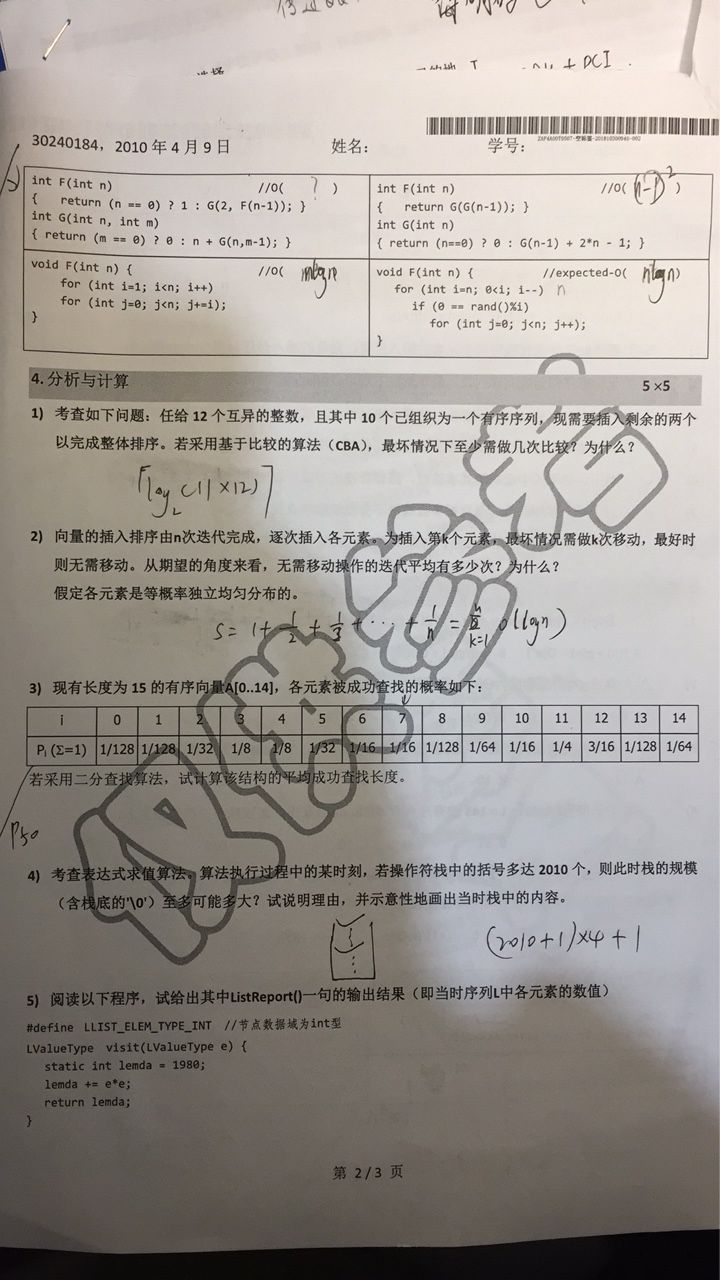 + PCI .
30240184, 2010 年 4 月 9 日 姓名: 学号:
int F(int n) //O( ? )
{ return (n == 0) ? 1 : G(2, F(n-1)); }
int G(int n, int m)
{ return (m == 0) ? 0 : n + G(n,m-1); }
int F(int n) //O( (n-1)² )
{ return G(G(n-1)); }
int G(int n)
{ return (n==0) ? 0 : G(n-1) + 2*n - 1; }
void F(int n) { //O( nlogn )
for (int i=1; i<n; i++)
for (int j=0; j<n; j+=i);
}
void F(int n) { //expected-O( nlogn)
for (int i=n; 0<i; i--) n
if (0 == rand()%i)
for (int j=0; j<n; j++);
}
4. 分析与计算 5 ×5
1) 考查如下问题：任给 12 个互异的整数，且其中 10 个已组织为一个有序序列，现需要插入剩余的两个
以完成整体排序。若采用基于比较的算法（CBA），最坏情况下至少需做几次比较？为什么？
⌈log₂(11×12)⌉
2) 向量的插入排序由n次迭代完成，逐次插入各元素。为插入第k个元素，最坏情况需做k次移动，最好时
则无需移动。从期望的角度来看，无需移动操作的迭代平均有多少次？为什么？
假定各元素是等概率独立均匀分布的。
S = 1 + 1/2 + 1/3 + ... + 1/n = Σ O(logn)
3) 现有长度为 15 的有序向量A[0..14]，各元素被成功查找的概率如下：
i 0 1 2 3 4 5 6 7 8 9 10 11 12 13 14
Pᵢ (Σ=1) 1/128 1/128 1/32 1/8 1/8 1/32 1/16 1/16 1/128 1/64 1/16 1/4 3/16 1/128 1/64
若采用二分查找算法，试计算该结构的平均成功查找长度。
P50
4) 考查表达式求值算法。算法执行过程中的某时刻，若操作符栈中的括号多达 2010 个，则此时栈的规模
（含栈底的'\0'）至多可能多大？试说明理由，并示意性地画出当时栈中的内容。
(2010+1)×4+1
5) 阅读以下程序，试给出其中ListReport()一句的输出结果（即当时序列L中各元素的数值）
#define LLIST_ELEM_TYPE_INT //节点数据域为int型
LValueType visit(LValueType e) {
static int lemda = 1980;
lemda += e*e;
return lemda;
}
第 2 / 3 页